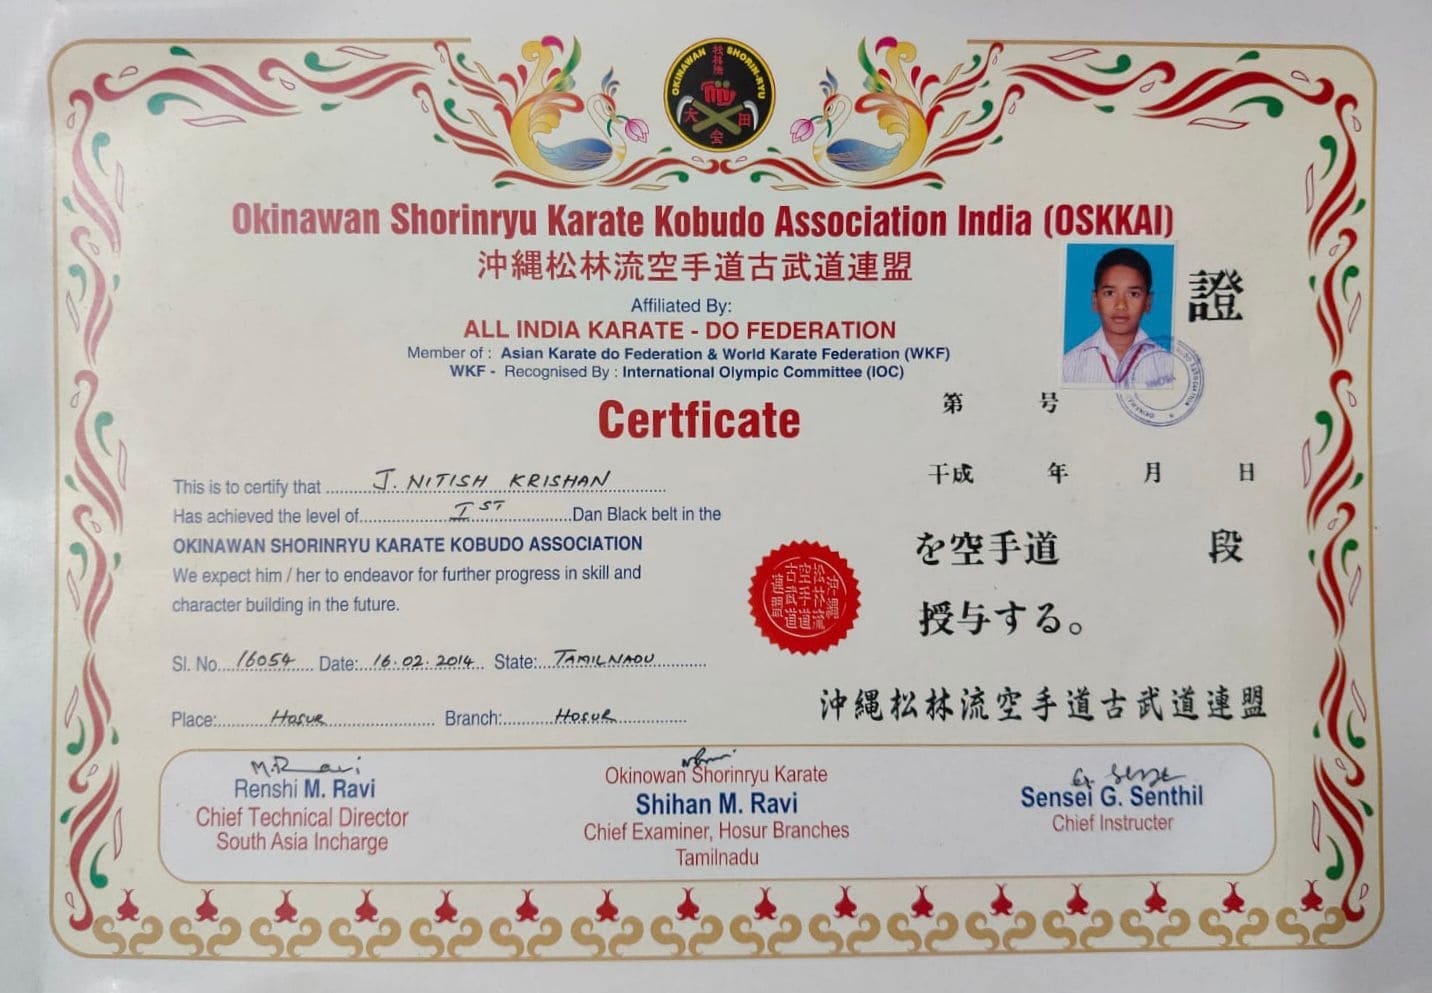 OKINAWAN SHORIN-RYU
松林流
大田
会
Okinawan Shorinryu Karate Kobudo Association India (OSKKAI)
沖縄松林流空手道古武道連盟
Affiliated By:
ALL INDIA KARATE - DO FEDERATION
Member of : Asian Karate do Federation & World Karate Federation (WKF)
WKF - Recognised By : International Olympic Committee (IOC)
Certficate
證
第 号
干成 年 月 日
を空手道 段
授与する。
沖縄松林流空手道古武道連盟
This is to certify that J. NITISH KRISHAN
Has achieved the level of I ST Dan Black belt in the
OKINAWAN SHORINRYU KARATE KOBUDO ASSOCIATION
We expect him / her to endeavor for further progress in skill and
character building in the future.
沖縄
松林流
空手道
古武道
連盟
Sl. No. 16054 Date: 16.02.2014 State: TAMILNADU
Place: HOSUR Branch: HOSUR
M. Ravi
Renshi M. Ravi
Chief Technical Director
South Asia Incharge
Okinowan Shorinryu Karate
Shihan M. Ravi
Chief Examiner, Hosur Branches
Tamilnadu
Sensei G. Senthil
Chief Instructer